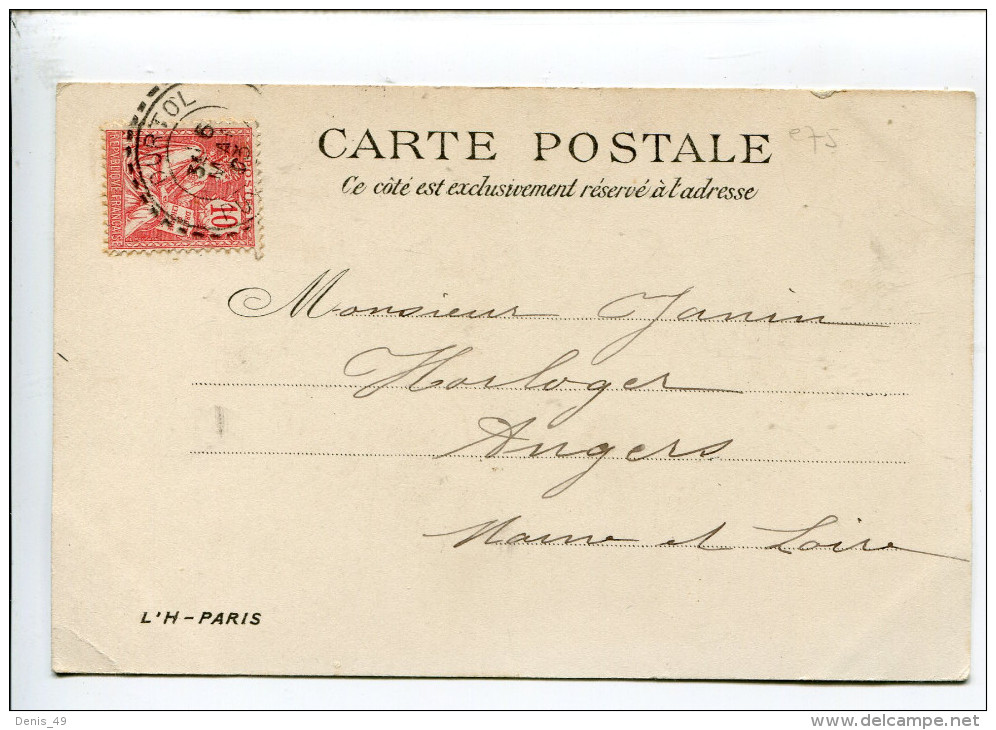 CARTE POSTALE
e75
Ce côté est exclusivement réservé à l'adresse
DURTOL
6
03
POSTES
10
REPUBLIQUE FRANÇAISE
Monsieur Janin
Horloger
Angers
Maine et Loire
L'H-PARIS
Denis_49
delcampe.net